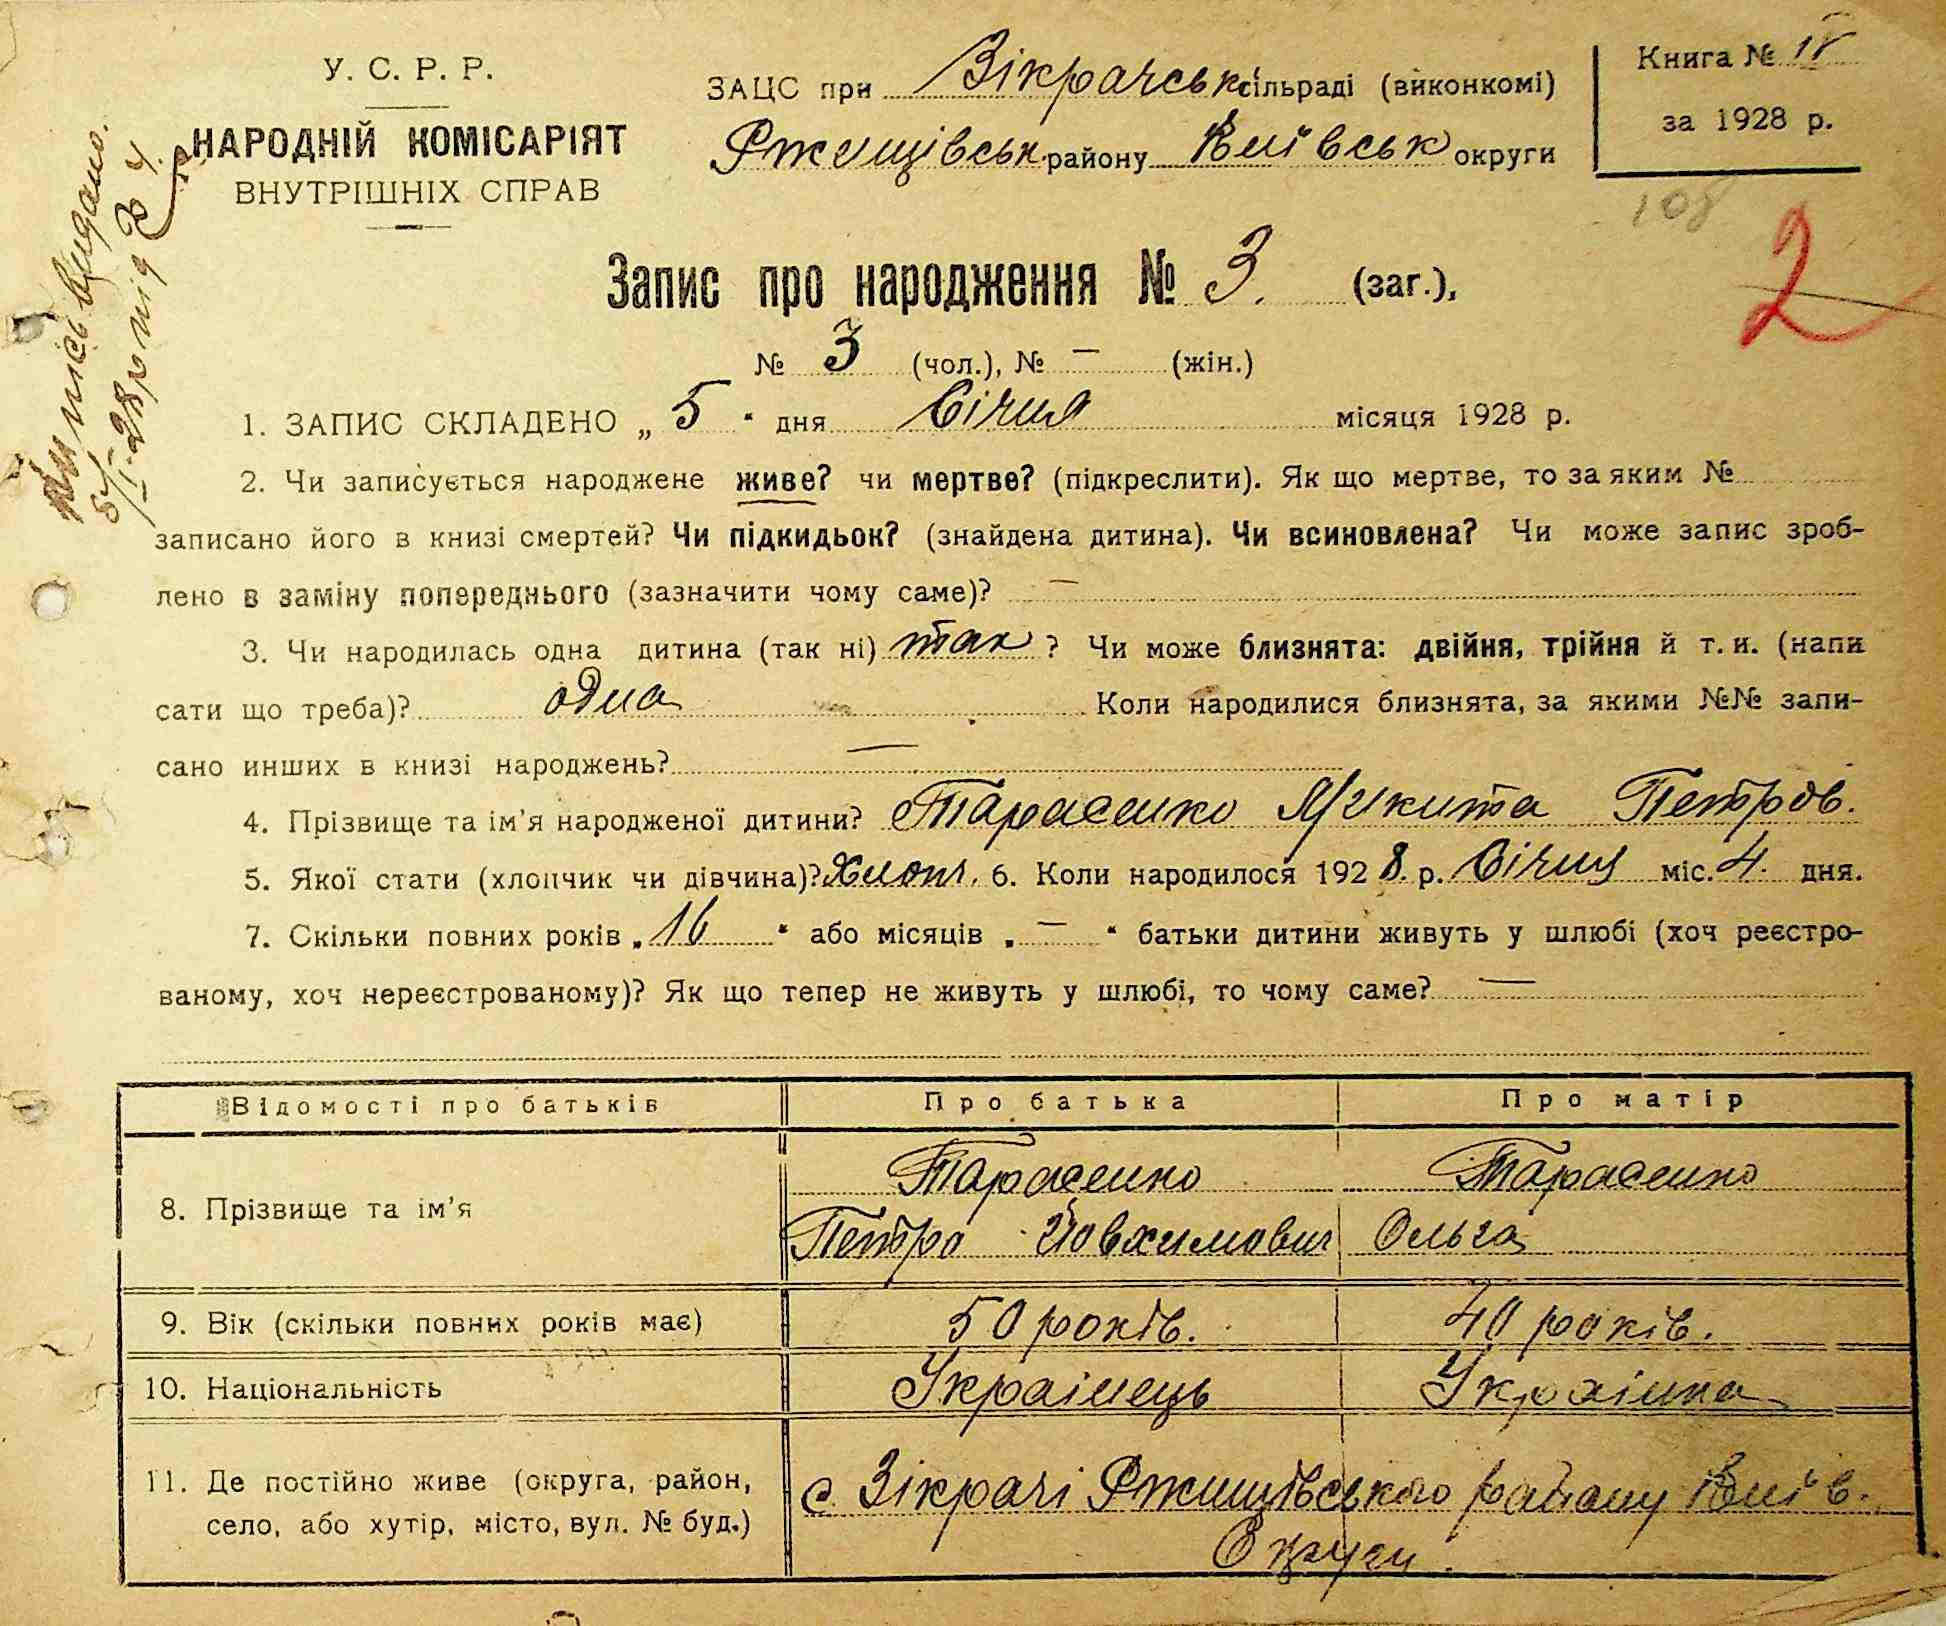 У. С. Р. Р.
НАРОДНІЙ КОМІСАРІЯТ
ВНУТРІШНІХ СПРАВ
ЗАЦС при Зікрачськ сільраді (виконкомі)
Ржищівськ. району Київськ округи
Книга №
за 1928 р.
108
2
Випись видано.
5/I-28 р під № 4.
Запис про народження № 3. (заг.),
№ 3 (чол.), № — (жін.)
1. ЗАПИС СКЛАДЕНО „ 5 " дня Січня місяця 1928 р.
2. Чи записується народжене живе? чи мертве? (підкреслити). Як що мертве, то за яким №
записано його в книзі смертей? Чи підкидьок? (знайдена дитина). Чи всиновлена? Чи може запис зроб-
лено в заміну попереднього (зазначити чому саме)? —
3. Чи народилась одна дитина (так ні) так ? Чи може близнята: двійня, трійня й т. и. (напи
сати що треба)? одна Коли народилися близнята, за якими №№ запи-
сано инших в книзі народжень? —
4. Прізвище та ім'я народженої дитини? Тарасенко Микита Петров.
5. Якої стати (хлопчик чи дівчина)? Хлопч. 6. Коли народилося 1928. р. Січня міс. 4. дня.
7. Скільки повних років „ 16 " або місяців „ — " батьки дитини живуть у шлюбі (хоч реєстро-
ваному, хоч нереєстрованому)? Як що тепер не живуть у шлюбі, то чому саме? —
Відомості про батьків Про батька Про матір
8. Прізвище та ім'я
Тарасенко
Петро Йовхимович
Тарасенко
Ольга
9. Вік (скільки повних років має) 50 років. 40 років.
10. Національність Українець Українка
11. Де постійно живе (округа, район,
село, або хутір, місто, вул. № буд.)
с. Зікрачі Ржищівського району Київ.
Округи.